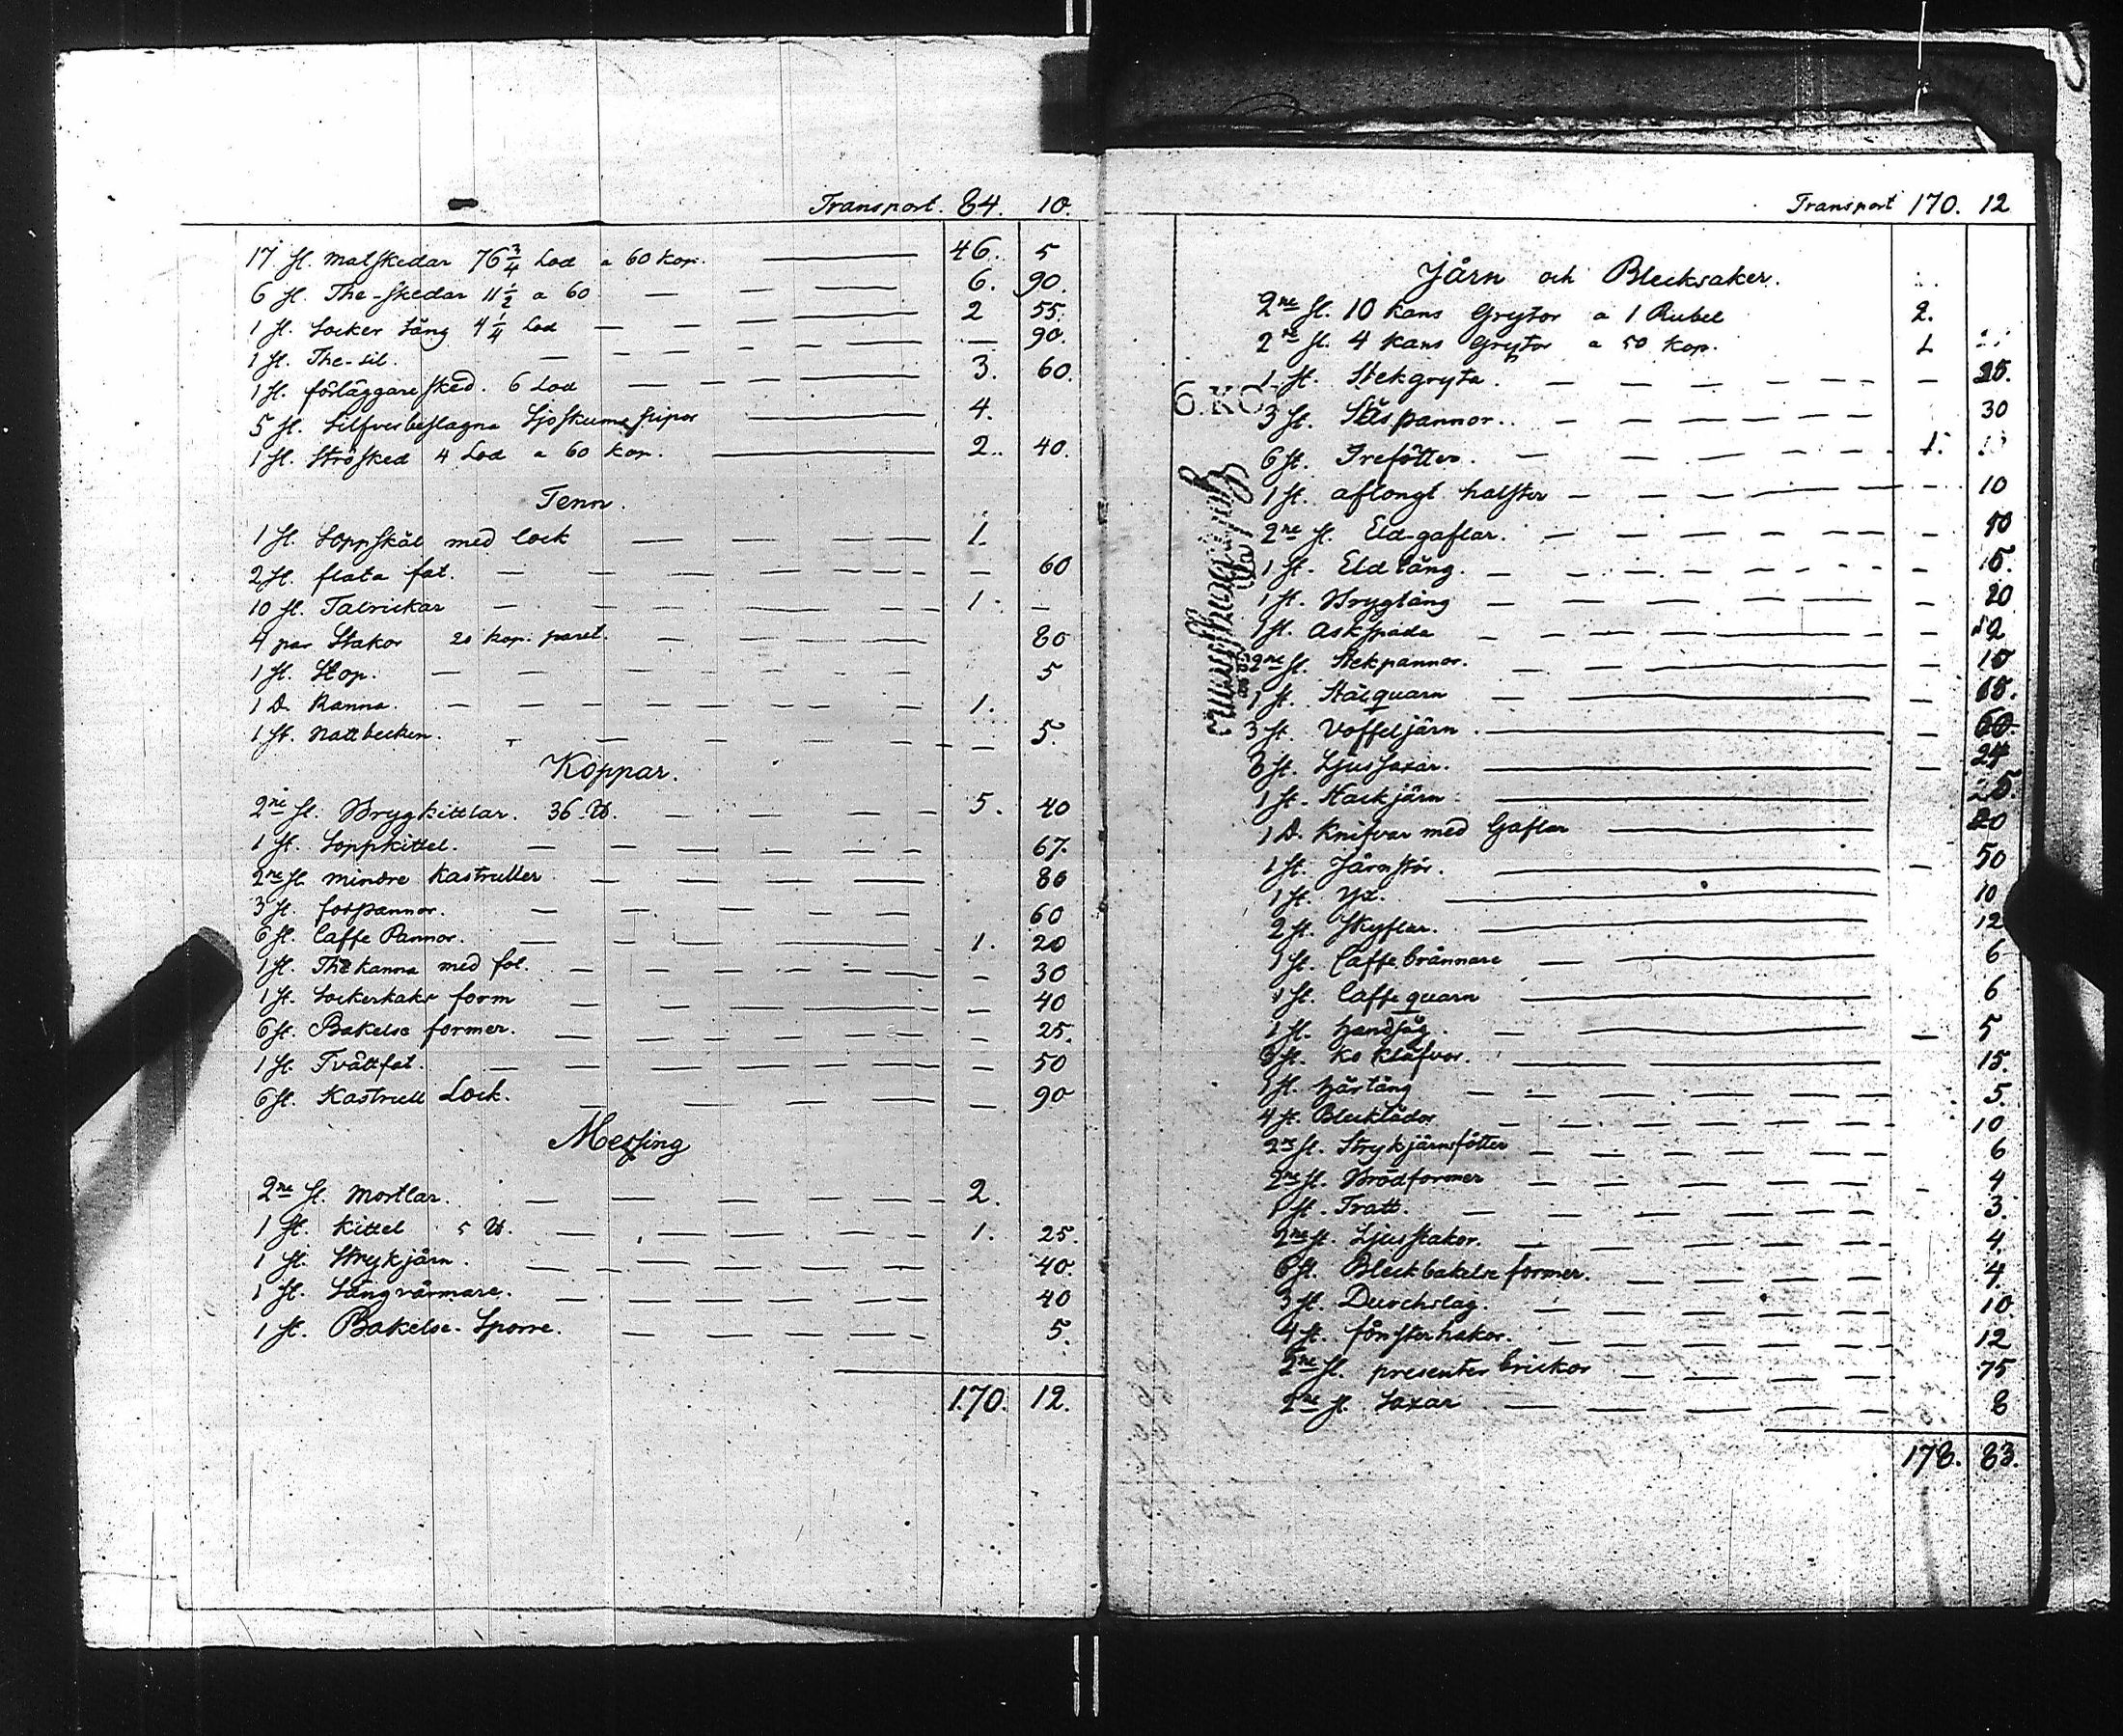 Transport. 84. 10.
17 st. matskedar 76 3/4 Lod a 60 kop. 46. 5
6 st. The-skedar 11 1/2 a 60 6. 90.
1 st. Socker tång 4 1/4 Lod 2 55.
1 st. The-sil. — 90.
1 st. förläggaresked. 6 Lod 3. 60.
5 st. Silfverbeslagna Sjöskums pipor 4.
1 st. Strösked 4 Lod a 60 kop. 2. 40.
Tenn.
1 st. Soppskål med lock 1.
2 st. flata fat. — 60
10 st. Talrickar 1. —
4 par Stakor 20 kop. paret. 80
1 st. Stop. 5
1 D. Kanna. 1.
1 st. Nattbecken. — 5.
Koppar.
2ne st. Brygkittlar. 36 ℔. 5. 40
1 st. Soppkittel. 67.
2ne st. mindre kastruller 80
3 st. fotpannor. 60
6 st. Caffe Pannor. 1. 20
1 st. Thekanna med fot. — 30
1 st. Sockerkaks form — 40
6 st. Bakelse former. — 25.
1 st. Tvättfat. — 50
6 st. Kastrull Lock. — 90
Messing
2ne st. Mortlar. 2.
1 st. Kittel 5 ℔. 1. 25.
1 st. Strykjärn. 40.
1 st. Sängvärmare. 40
1 st. Bakelse-Sporre. 5.
170. 12.
Transport 170. 12
Järn och Blecksaker.
2ne st. 10 kans Grytor a 1 Rubel 2.
2ne st. 4 kans Grytor a 50 kop. 1
1 st. Stekgryta. — 25.
6.KO
3 st. Såspannor. 30
6 st. Trefötter. 1.
1 st. aflongt halster — 10
2ne st. Eld-gaflar. — 50
1 st. Eldtång. — 15.
1 st. Brygtång — 20
1 st. Askspada — 12
2ne st. Stekpannor. — 10
1 st. Stålquarn — 15.
3 st. Voffeljärn. — 60.
8 st. Ljussaxar. — 24
1 st. Hackjärn 25.
1 D. Knifvar med Gaflar 20
1 st. Järnstör. — 50
1 st. Yx. 10
2 st. Skyflar. 12
1 st. Caffe brännare 6
1 st. Caffe quarn 6
1 st. Handsåg. — 5
3 st. Ko klåfvor. 15.
1 st. Hårtång 5.
4 st. Blecklådor 10
2ne st. Strykjärnsfötter 6
2ne st. Brödformer 4
1 st. Tratt. 3.
2ne st. Ljusstakor. 4.
6 st. Bleckbakelse former. 4.
3 st. Durchslag. 10
4 st. fönsterhakor. 12
2ne st. presenter brickor 75
2ne st. Saxar 8
178. 83.